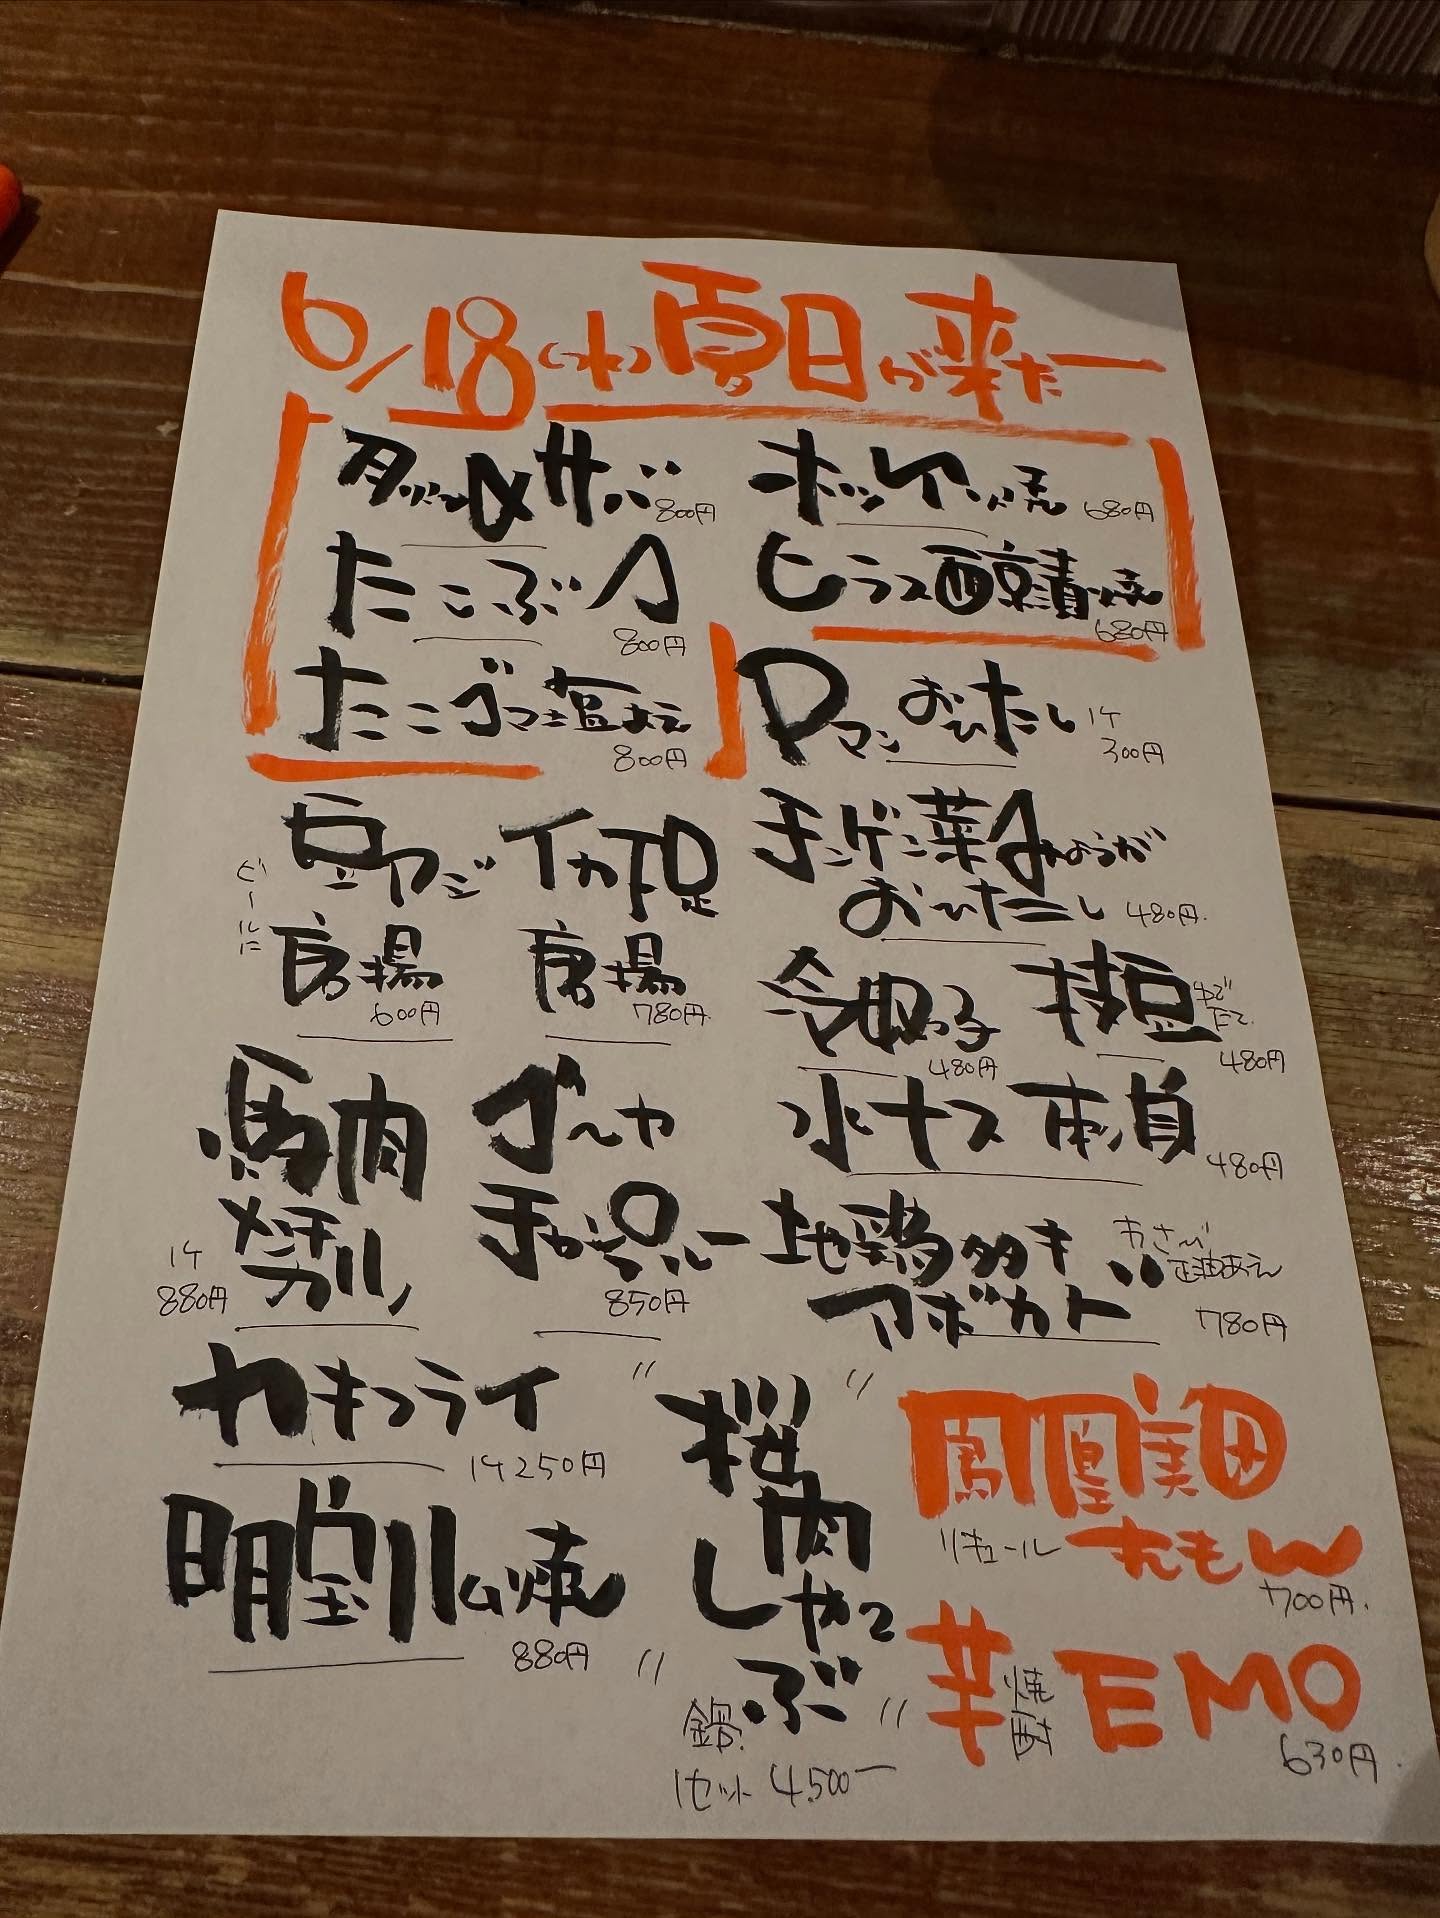 6/18(水)夏日が来たー
サバ 800円
たこぶつ 800円
たこゴマ塩あえ 800円
ホッケ 680円
ヒラス西京焼 680円
Pマンおひたし 1ケ 300円
チンゲン菜みょうが
おひたし 480円
冷奴っ子 480円
枝豆 ゆでたて 480円
水ナス 480円
地鶏タタキ
アボカド わさび正油あえ 780円
ビールに
豆アジ
唐揚 600円
イカ下足
唐揚 780円
馬肉
メンチカツ 1ケ 880円
ゴーヤ
チャンプルー 850円
カキフライ 1ケ250円
明宝ハム焼 880円
"桜肉しゃぶ"
鍋 1セット 4,500ー
鳳凰美田
リキュール れもん 700円
芋 焼酎 EMO 630円